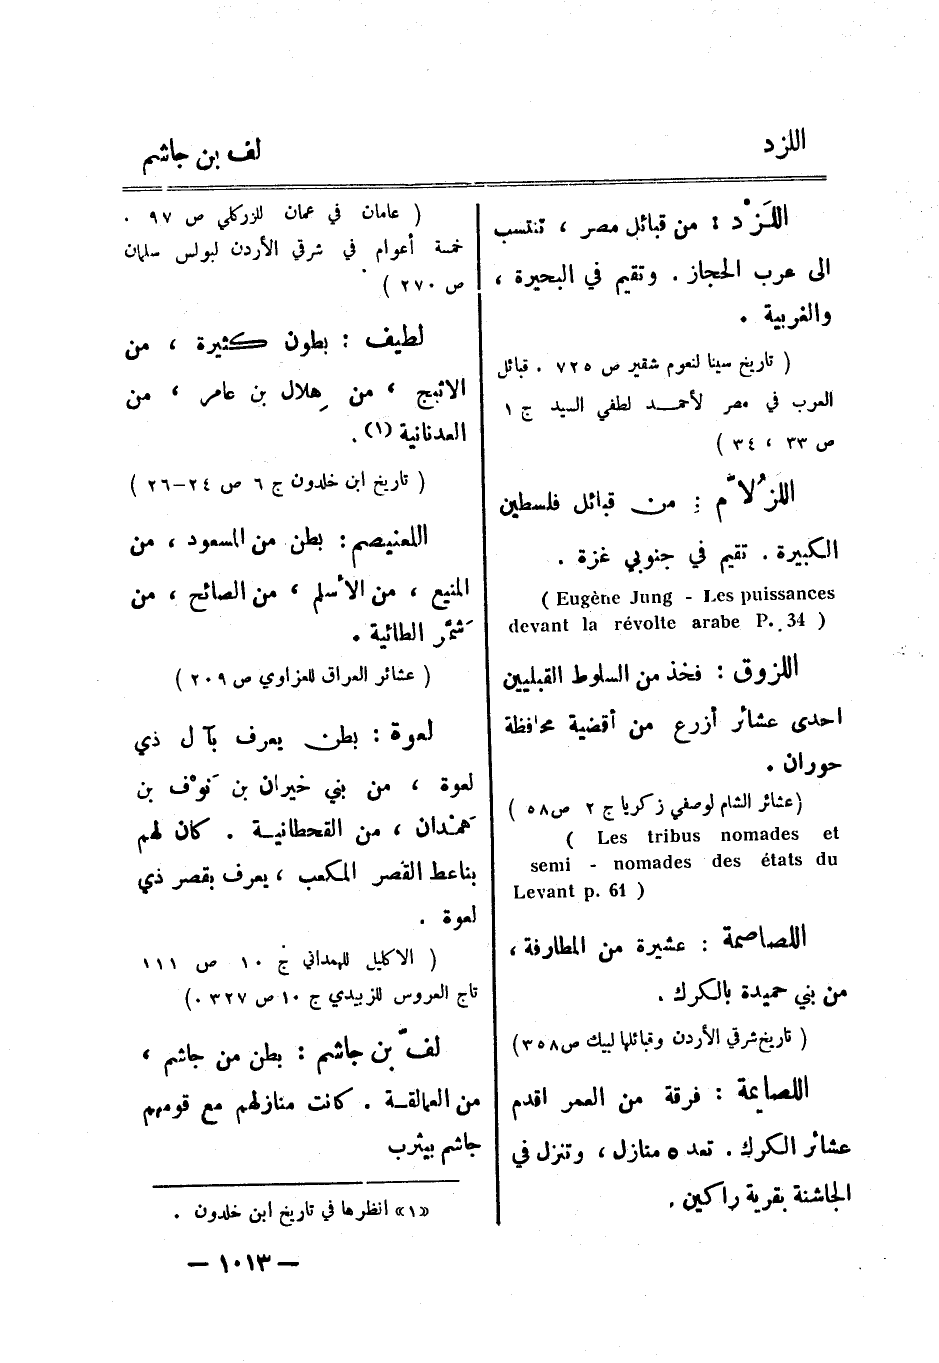 اللزد
لف بن جاشم
اللَزْد : من قبائل مصر ، تنتسب
الى عرب الحجاز . وتقيم في البحيرة ،
والغربية .
( تاريخ سينا لنعوم شقير ص ٧٢٥ . قبائل
العرب في مصر لأحمد لطفي السيد ج ١
ص ٣٣ ، ٣٤ )
اللزُلاَّم : من قبائل فلسطين
الكبيرة . تقيم في جنوبي غزة .
( Eugène Jung - Les puissances
devant la révolte arabe P. 34 )
اللزوق : فخذ من السلوط القبليين
احدى عشائر أزرع من أقضية محافظة
حوران .
(عشائر الشام لوصفي زكريا ج ٢ ص٥٨ )
( Les tribus nomades et
semi - nomades des états du
Levant p. 61 )
اللصاصمة : عشيرة من المطارفة ،
من بني حميدة بالكرك .
( تاريخ شرقي الأردن وقبائلها لبيك ص٣٥٨)
اللصايمة : فرقة من العمر اقدم
عشائر الكرك . تعد ٥ منازل ، وتنزل في
الجاشنة بقرية راكين .
( عامان في عمان للزركلي ص ٩٧ .
خمسة أعوام في شرقي الأردن لبولس سلمان
ص ٢٧٠ )
لطيف : بطون كثيرة ، من
الاثبج ، من هِلال بن عامر ، من
العدنانية (١) .
( تاريخ ابن خلدون ج ٦ ص ٢٤–٢٦ )
اللعنيصم : بطن من المسعود ، من
المنيع ، من الأسلم ، من الصائح ، من
شَمَّر الطائية .
( عشائر العراق للعزاوي ص ٢٠٩ )
لعوة : بطن يعرف بآل ذي
لعوة ، من بني خيران بن نَوْف بن
هَمْدان ، من القحطانية . كان لهم
بناعط القصر المكعب ، يعرف بقصر ذي
لعوة .
( الاكليل للهمداني ج ١٠ ص ١١١
تاج العروس للزبيدي ج ١٠ ص ٣٢٧ .)
لفّ بن جاشم : بطن من جاشم ،
من العمالقة . كانت منازلهم مع قومهم
جاشم بيثرب
«١» انظرها في تاريخ ابن خلدون .
— ١٠١٣ —